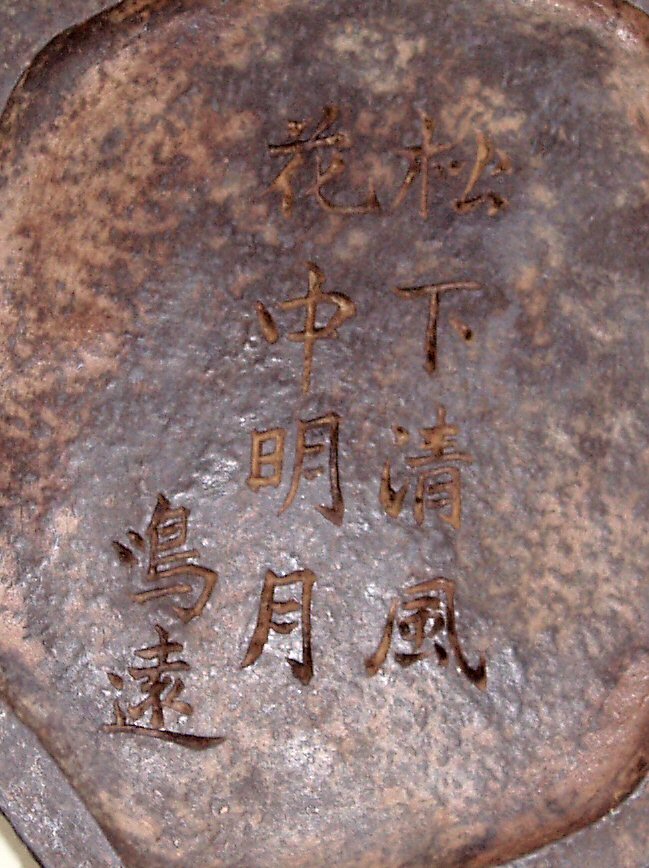 松下清風
花中明月
鳴遠